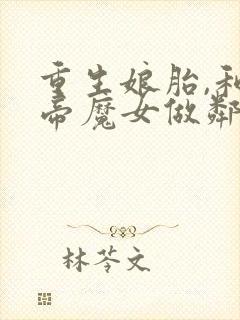 重生娘胎,和
帝魔女做鄰
林苓文